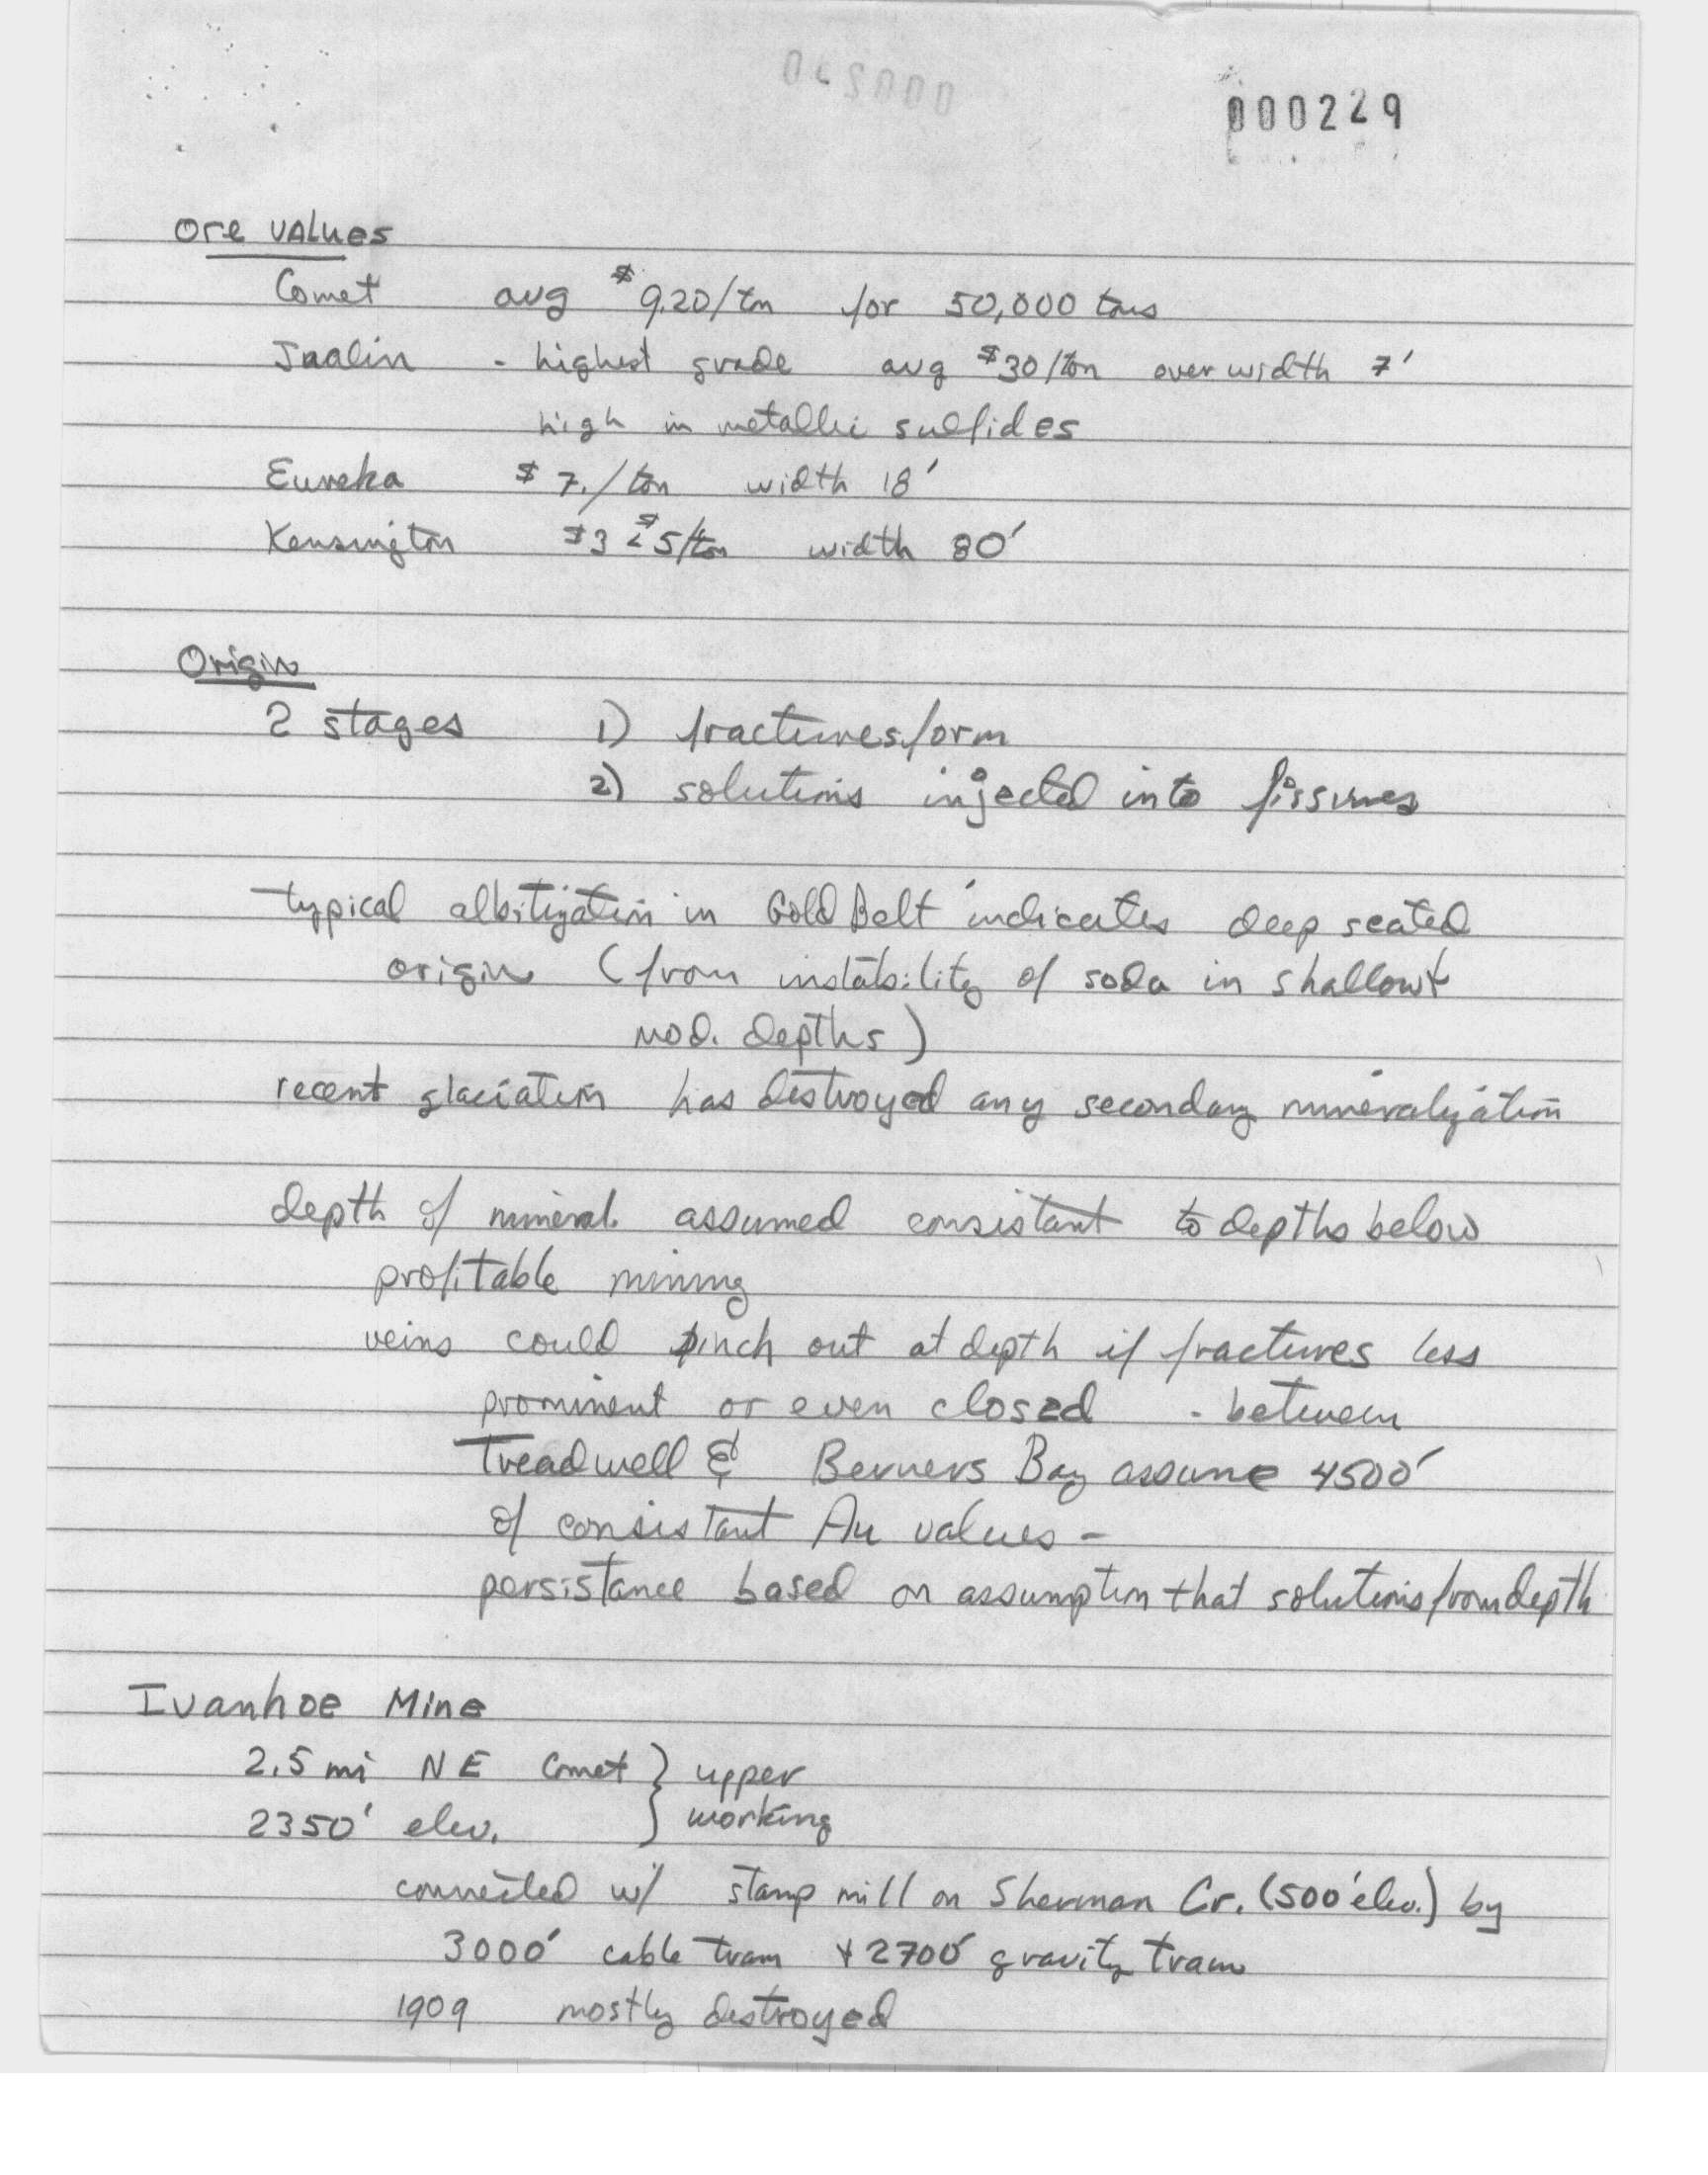 000229
Ore values
Comet avg $9.20/ton for 50,000 tons
Jualin - highest grade avg $30/ton over width 7'
high in metallic sulfides
Eureka $7./ton width 18'
Kensington $3 $5/ton width 80'
Origin
2 stages 1) fractures form
2) solutions injected into fissures
typical albitization in Gold Belt indicates deep seated
origin (from instability of soda in shallow +
mod. depths)
recent glaciation has destroyed any secondary mineralization
depth of mineral. assumed consistant to depths below
profitable mining
veins could pinch out at depth if fractures less
prominent or even closed - between
Treadwell & Berners Bay assume 4500'
of consistant Au values -
persistance based on assumption that solutions from depth
Ivanhoe Mine
2.5 mi NE Comet } upper
2350' elev. } working
connected w/ stamp mill on Sherman Cr. (500' elev.) by
3000' cable tram + 2700' gravity tram
1909 mostly destroyed